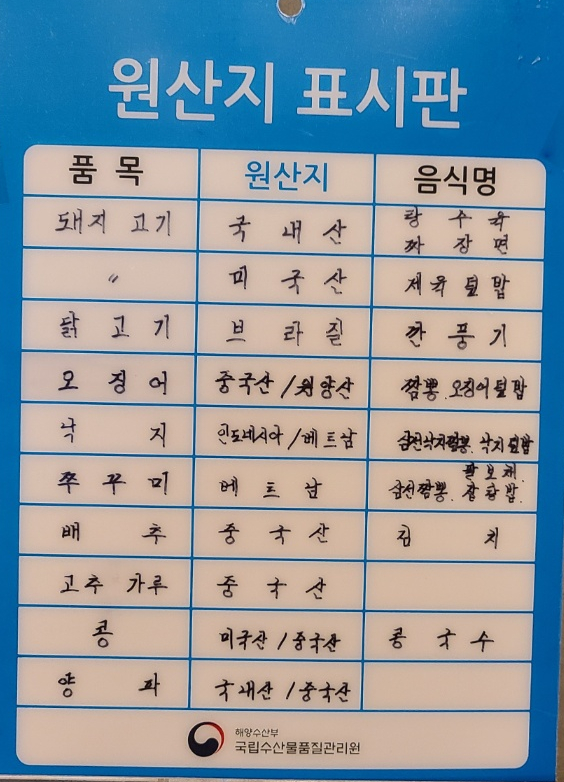 원산지 표시판
품 목 원산지 음식명
돼지 고기 국 내 산 탕 수 육
짜 장 면
〃 미 국 산 제 육 덮 밥
닭 고 기 브 라 질 깐 풍 기
오 징 어 중국산 / 원양산 짬뽕. 오징어덮밥
낙 지 인도네시아 / 베트남 삼선낙지짬뽕. 낙지덮밥
쭈 꾸 미 베 트 남 팔보채.
삼선짬뽕. 잡탕밥.
배 추 중 국 산 김 치
고추 가루 중 국 산
콩 미국산 / 중국산 콩 국 수
양 파 국내산 / 중국산
해양수산부
국립수산물품질관리원